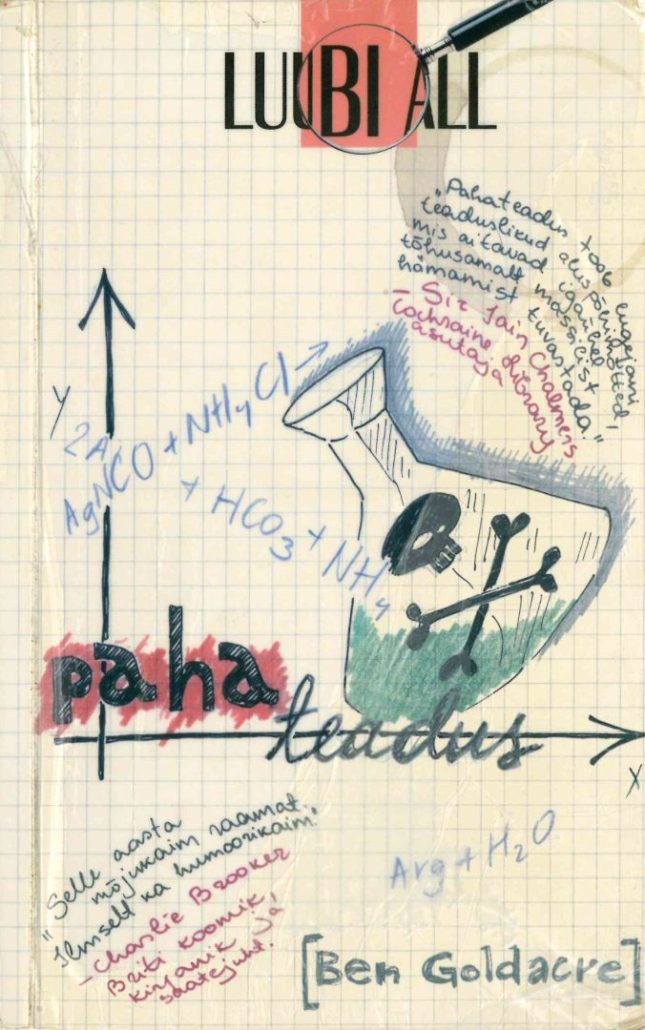 LUUBI ALL
"Pahateadus toob lugejani
teaduslikud aluspõhimõtted,
mis aitavad igaühel
tõhusamalt massilist
hämamist tuvastada."
– Sir Iain Chalmers
Cochraine Library
asutaja
Y
2A
AgNCO + NH4Cl →
+ HCO3 + NH4
paha
teadus
X
"Selle aasta
mõjukaim raamat.
Ilmselt ka humoorikaim."
– Charlie Brooker
Briti koomik,
kirjanik ja
saatejuht.
Arg + H2O
[Ben Goldacre]